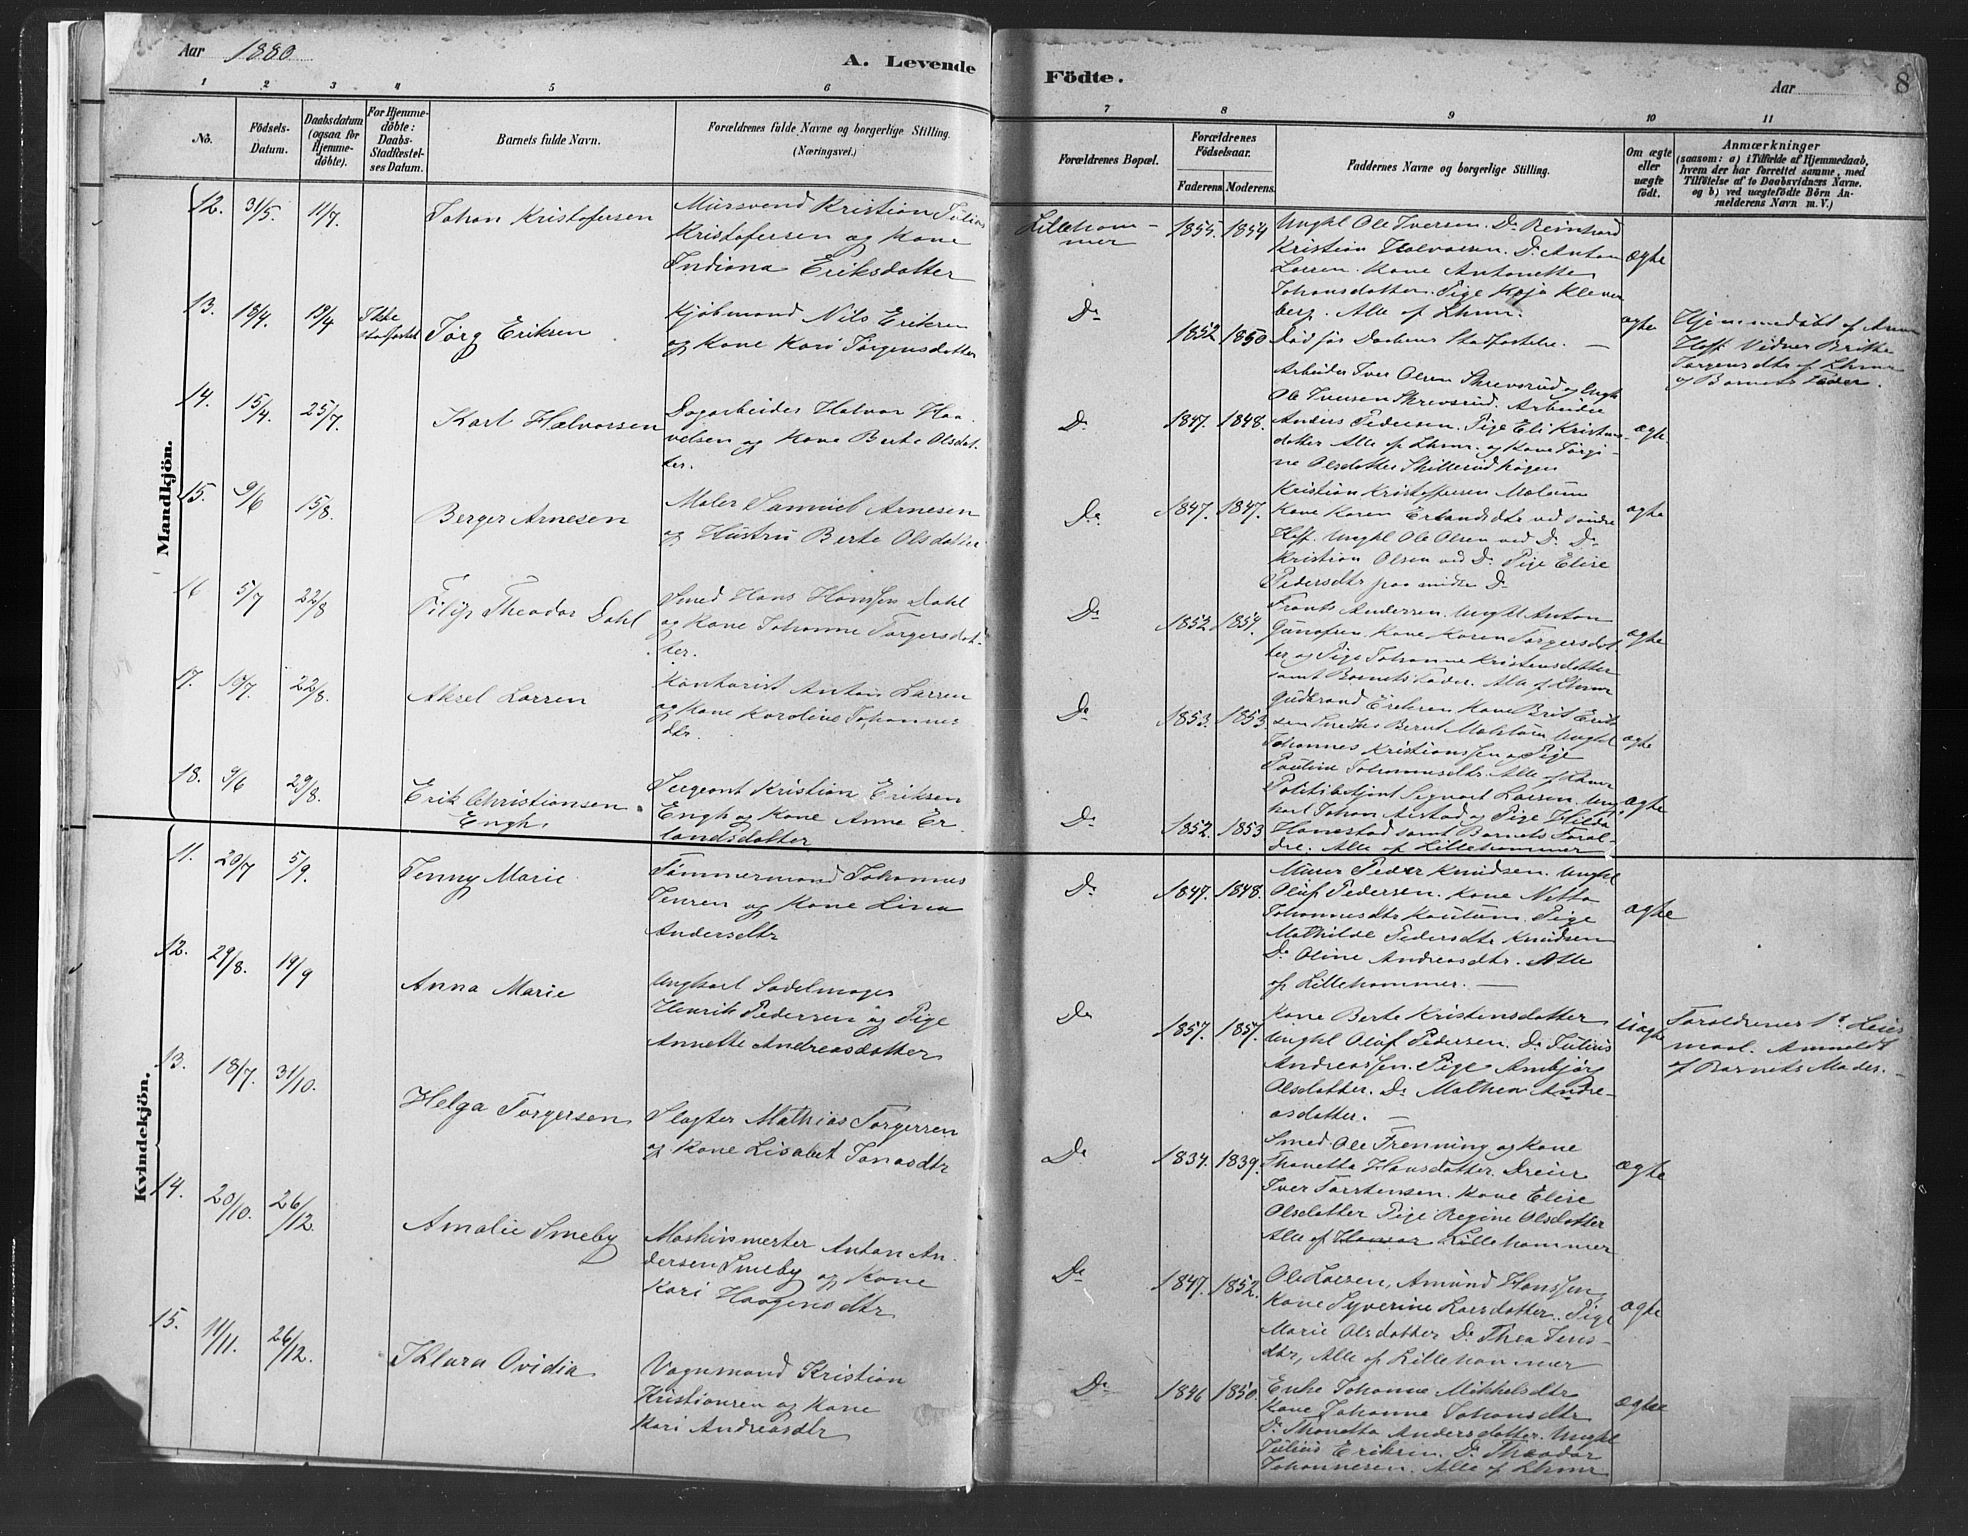 Aar 1880
A. Levende
Födte.
Aar
8
1 2 3 4 5 6 7 8 9 10 11
No.
Födsels-Datum.
Daabsdatum (ogsaa for Hjemme-döbte).
For Hjemme-döbte: Daabs-Stadfæstel-ses Datum.
Barnets fulde Navn.
Forældrenes fulde Navne og borgerlige Stilling.
(Næringsvei.)
Forældrenes Bopæl.
Forældrenes Födselsaar.
Faderens. Moderens.
Faddernes Navne og borgerlige Stilling.
Om ægte eller uægte födt.
Anmærkninger
(saasom: a) i Tilfælde af Hjemmedaab,
hvem der har forrettet samme, med
Tilföielse af to Daabsvidners Navne.
og b) ved uægtefödte Börn An-
melderens Navn m. V.)
Mandkjön.
12. 31/5. 11/7. Johan Kristofersen
Mursvend Kristian Julius
Kristofersen og Kone
Indiana Eriksdatter
Lilleham-
mer
1855. 1854
Ungkl Ole Iversen. Do Reinhard
Kristian Halvorsen. Do Anton
Larsen. Kone Antonette
Johansdatter. Pige Kaja Klever
berg. Alle af Lhmr.
ægte
13. 18/4. 19/4 Ikke stadfæstet Jørg Eriksen
Kjøbmand Nils Eriksen
og Kone Kari Jørgensdatter
Do 1852 1850
Død før Daabens Stadfæstelse. —
ægte
Hjemmedøbt af Anne
Hoff Vidner Britha
Jørgensdtr af Lhmr
og Barnets Fader.
14. 15/4. 25/7. Karl Halvorsen
Dagarbeider Halvor Haa-
velsen og Kone Berte Olsdat-
ter.
Do 1847. 1848.
Arbeider Iver Olsen Skrevsrud og Ungk
Ole Iversen Skrevsrud. Arbeider
Anders Pedersen. Pige Eli Kristens-
datter Alle af Lhmr. og Kone Jørgi-
ne Olsdatter Skillerudhagen
ægte
15. 9/6 15/8. Berger Arnesen
Maler Samuel Arnesen
og Hustru Berte Olsdatter
Do 1847. 1847.
Kristian Kristoffersen Malerne
Kone Karen Erlandsdtr ved søndre
Hoff. Ungkl Ole Olsen ved Do Do
Kristian Olsen ved Do Pige Elise
Pedersdtr paa midtre Do
ægte
16 5/7 22/8 Filip Theodor Dahl
Smed Hans Hanssen Dahl
og Kone Johanne Torgersdat-
ter.
Do 1852 1854.
Frants Andersen. Ungkl Anton
Kone Karen Torgersdat-
ter og Pige Johanne Kristensdatter
samt Barnets Fader. Alle af Lhmr
ægte
17. 10/7. 22/8. Aksel Larsen
Kontorist Anton Larsen
og Kone Karoline Johannes
dtr.
Do 1853. 1853
Gudbrand Eriksen Kone Brit Erik
Bernt Ungkl
Johannes Kristianssen og Pige
Pauline Johannesdtr. Alle af Lhmr
ægte
18. 9/6 29/8. Erik Christiansen
Engh.
Sergeant Kristian Eriksen
Engh og Kone Anne Er-
landsdatter
Do 1852. 1853
Politibetjent Sigvart Larsen. Ung-
karl Johan Aistad og Pige Hilda
Hanestad samt Barnets Foræl-
dre. Alle af Lillehammer
ægte
Kvindekjön.
11. 20/7 5/9. Jenny Marie
Tømmermand Johannes
Jensen og Kone Lina
Andersdtr
Do 1847. 1848.
Murer Peder Knudsen. Ungkl
Oluf Pedersen. Kone Netta
Johannesdtr Pige
Mathilde Pedersdtr Knudsen
Do Oline Andreasdtr. Alle
af Lillehammer. —
ægte
12. 29/8. 19/9 Anna Marie
Ungkarl Sadelmager
Henrik Pedersen og Pige
Annette Andreasdatter
Do 1857. 1857.
Kone Berte Kristensdatter
Ungkl Oluf Pedersen. Do Julius
Andreassen. Pige Anbjør
Olsdatter. Do Mathea Andre-
asdatter. —
uægte
Forældrenes 1st Leier
maal. Anmeldt
af Barnets Moder. —
13. 18/7. 31/10. Helga Torgersen
Slagter Mathias Torgersen
og Kone Lisabet Jonasdtr
Do 1834. 1839.
Smed Ole Frenning og Kone
Thonetta Hansdatter. Dreier
Iver Torstensen. Kone Elise
Olsdatter Pige Regine Olsdatter
Alle af Lillehammer
ægte
14. 20/10. 26/12. Amalie Smeby
Maskinmester Anton An-
dersen Smeby og Kone
Kari Haagensdtr
Do 1847. 1852.
Ole Larsen, Amund Hanssen,
Kone Syverine Larsdatter. Pige
Marie Olsdatter Do Thea Jens-
dtr, Alle af Lillehammer
ægte
15. 14/11. 26/12. Khlara Ovidia
Vognmand Kristian
Kristiansen og Kone
Kari Andreasdtr
Do 1846 1850.
Enke Johanne Mikkelsdtr
Kone Johanne Johansdtr
Do Thonetta Andersdatter. Ungkl
Julius Eriksen. Do Theodor
Johannesen. Alle af Lhmr
ægte